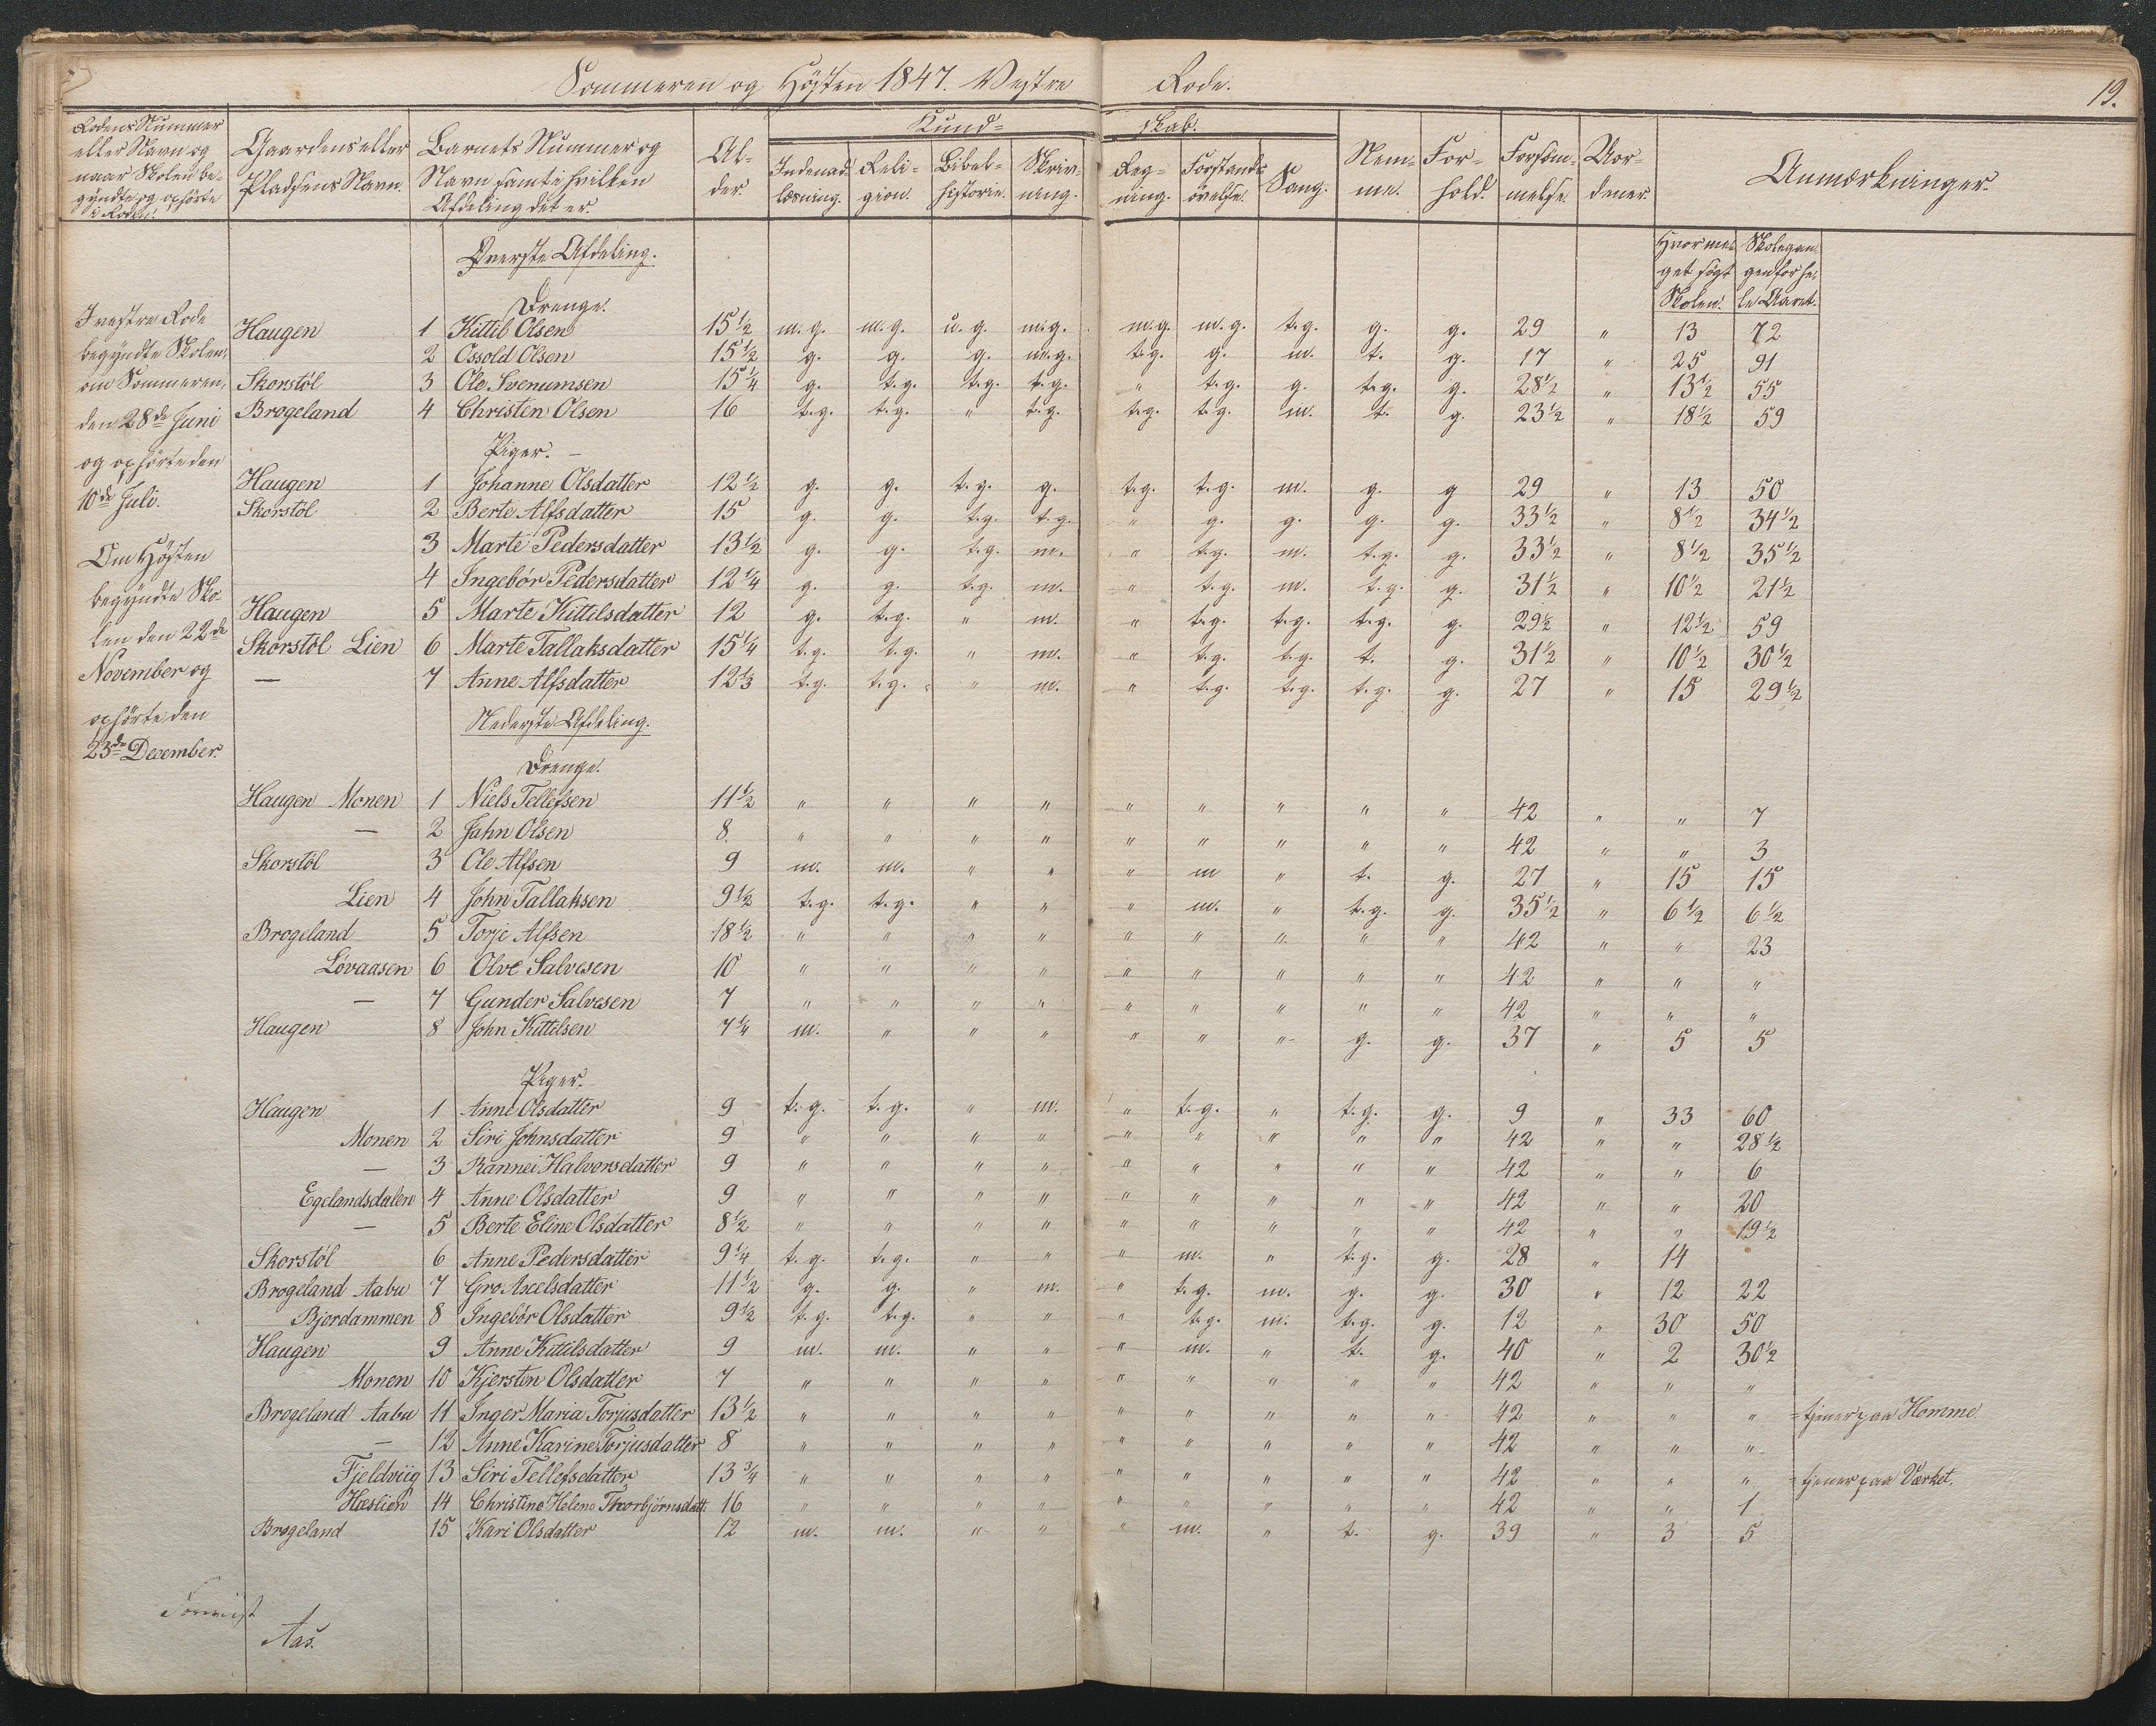 Sommeren og Høsten 1847. Vestre Rode.
19.
Rodens Nummer eller Navn og naar Skolen begyndte og ophørte i Roden.
Gaardens eller Pladsens Navn.
Barnets Nummer og Navn samt i hvilken Afdeling det er.
Alder.
Kundskab.
Indenadlæsning. Religion. Bibelhistorie. Skrivning. Regning. Forstandsøvelse. Sang.
Nemme. Forhold. Forsømmelse. Uordener. Anmærkninger.
Hvormeget søgt Skolen. Skolegangen for hele Aaret.
I vestre Rode
begyndte Skolen,
om Sommeren,
den 28de Juni
og ophørte den
10de Juli.
Om Høsten
begyndte Sko-
len den 22de
November og
ophørte den
23de December.
Øverste Afdeling.
Drenge.
Haugen 1 Kittil Olsen 15½ m.g. m.g. u.g. m.g. m.g. m.g. t.g. g. g. 29 " 13 72
2 Ossold Olsen 15½ g. g. g. m.g. t.g. g. m. t. g. 17 " 25 91
Skorstöl 3 Ole Svenumsen 15¼ g. t.g. t.g. t.g. " t.g. g. t.g. g. 28½ " 13½ 55
Brogeland 4 Christen Olsen 16 t.g. t.g. " t.g. t.g. t.g. m. t. g. 23½ " 18½ 59
Piger. –
Haugen 1 Johanne Olsdatter 12½ g. g. t.g. g. t.g. t.g. m. g. g 29 " 13 50
Skorstöl 2 Berte Alfsdatter 15 g. g. t.g. t.g. " g. g. g. g. 33½ " 8½ 34½
3 Marte Pedersdatter 13½ g. g. t.g. m. " t.g. m. t.g. g. 33½ " 8½ 35½
4 Ingebör Pedersdatter 12¼ g. g. t.g. m. " t.g. m. t.g. g. 31½ " 10½ 21½
Haugen 5 Marte Kittilsdatter 12 g. t.g. " m. " t.g. t.g. t.g. g. 29½ " 12½ 59
Skorstöl Lien 6 Marte Tallaksdatter 15¼ t.g. t.g. " m. " t.g. t.g. t. g. 31½ " 10½ 30½
— 7 Anne Alfsdatter 12⅓ t.g. t.g. " m. " t.g. t.g. t.g. g. 27 " 15 29½
Nederste Afdeling.
Drenge.
Haugen Monen 1 Niels Tellefsen 11½ " " " " " " " " " 42 " " 7
— 2 Jahn Olsen 8 " " " " " " " " " 42 " " 3
Skorstöl 3 Ole Alfsen 9 m. m. " " " m " t. g. 27 " 15 15
Lien 4 John Tallaksen 9½ t.g. t.g. " " " m. " t.g. g. 35½ " 6½ 6½
Brogeland 5 Torje Alfsen 18½ " " " " " " " " " 42 " " 23
Lövaasen 6 Olve Salvesen 10 " " " " " " " " " 42 " " "
— 7 Gunder Salvesen 7 " " " " " " " " " 42 " " "
Haugen 8 John Kittilsen 7¼ m. " " " " " " g. g. 37 " 5 5
Piger.
Haugen 1 Anne Olsdatter 9 t.g. t.g. " m. " t.g. " t.g. g. 9 " 33 60
Monen 2 Siri Johnsdatter 9 " " " " " " " " " 42 " " 28½
— 3 Rannei Halvorsdatter 9 " " " " " " " " " 42 " " 6
Egelandsdalen 4 Anne Olsdatter 9 " " " " " " " " " 42 " " 20
— 5 Berte Eline Olsdatter 8½ " " " " " " " " " 42 " " 19½
Skorstöl 6 Anne Pedersdatter 9¼ t.g. t.g. " " " m. " t.g. g. 28 " 14
Brogeland Aabu 7 Gro Axelsdatter 11½ g. g. " m. " t.g. m. g. g. 30 " 12 22
Bjordammen 8 Ingebör Olsdatter 9½ t.g. t.g. " " " t.g. m. t.g. g. 12 " 30 50
Haugen 9 Anne Kittilsdatter 9 m. m. " " " m. " t. g. 40 " 2 30½
Monen 10 Kjersten Olsdatter 7 " " " " " " " " " 42 " " "
Brogeland Aabu 11 Inger Maria Torjusdatter 13½ " " " " " " " " " 42 " " " = tjener paa Homme.
— 12 Anne Karine Torjusdatter 8 " " " " " " " " " 42 " " "
Fjeldviig 13 Siri Tellefsdatter 13¾ " " " " " " " " " 42 " " " = tjener paa Værket.
Hæslien 14 Christine Helene Thorbjörnsdatt: 16 " " " " " " " " " 42 " " 1
Brogeland 15 Kari Olsdatter 12 m. m. " " " m. " t. g. 39 " 3 5
Aas.